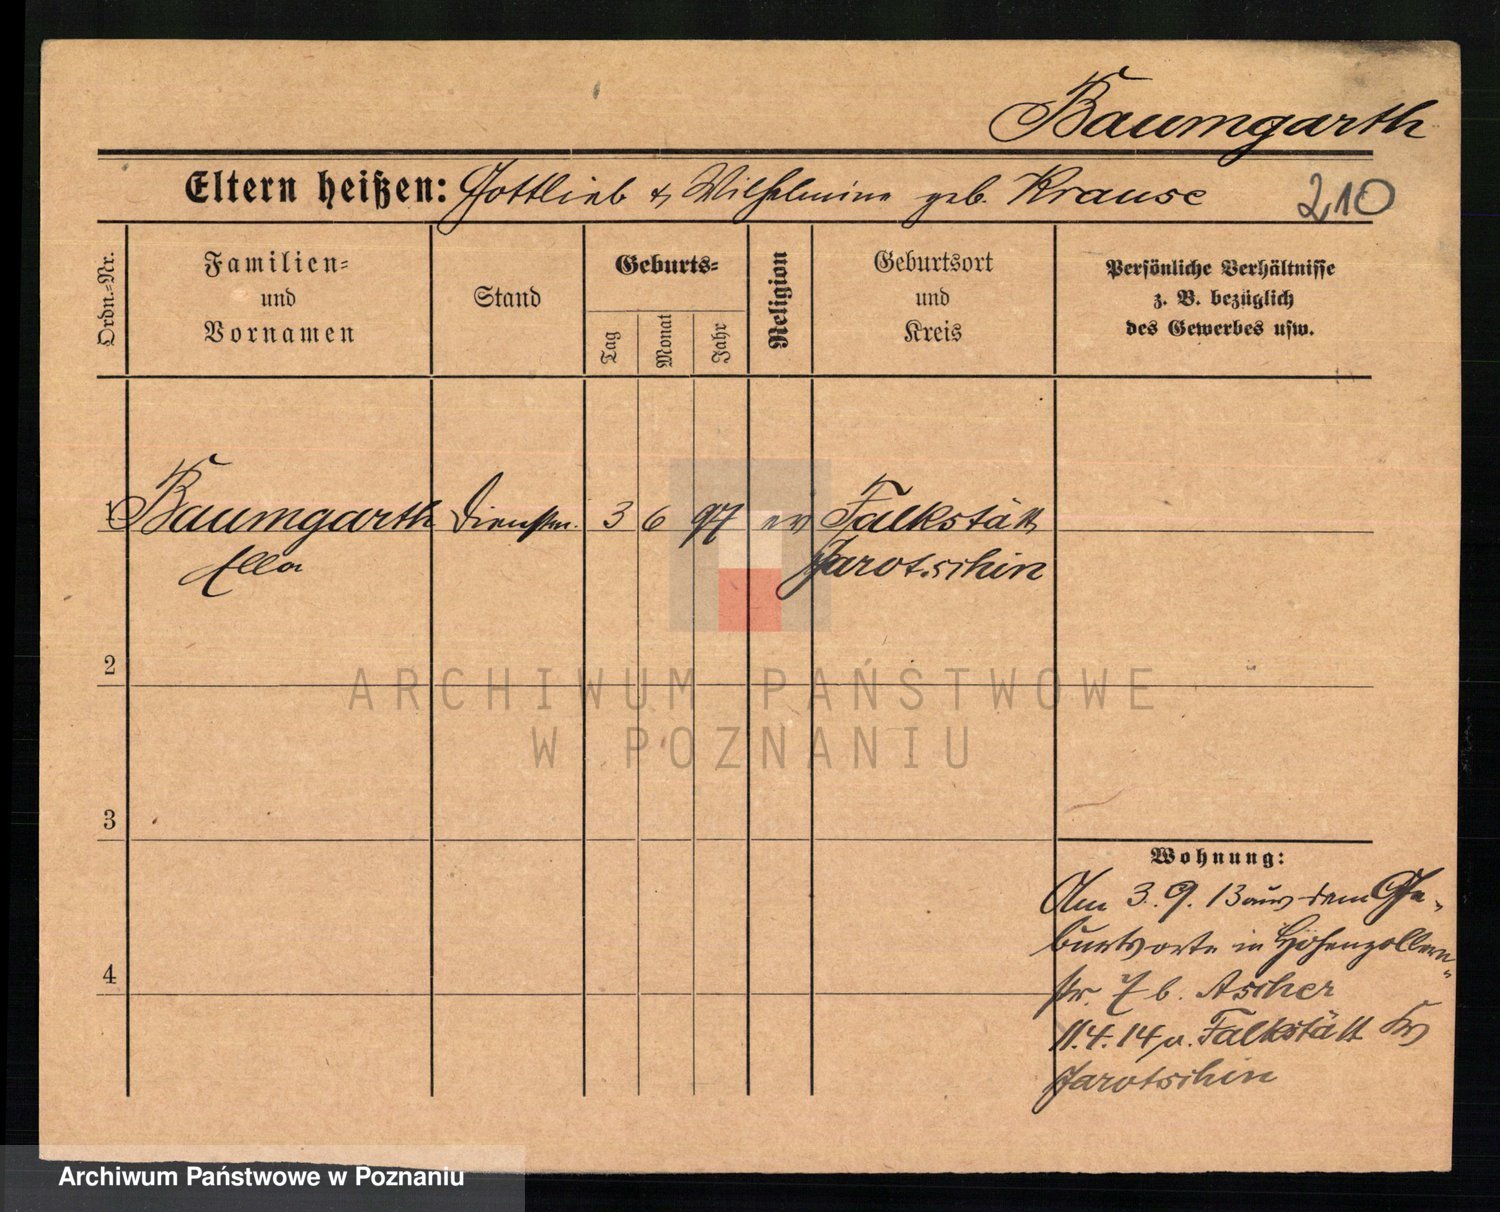 Baumgarth
Eltern heißen: Gottlieb & Wilhelmine geb. Krause
210
Ordn.-Nr.
Familien-
und
Vornamen
Stand
Geburts-
Tag
Monat
Jahr
Religion
Geburtsort
und
Kreis
Persönliche Verhältnisse
z. B. bezüglich
des Gewerbes usw.
1 Baumgarth Dienstm. 3 6 97 ev Falkstätt
Ella Jarotschin
2
3
4
Wohnung:
Am 3. 9. 13 aus dem Ge-
burtsorte in Hohenzollern-
str. 7 b. Ascher
11.4.14 n. Falkstätt Kr
Jarotschin
ARCHIWUM PAŃSTWOWE
W POZNANIU
Archiwum Państwowe w Poznaniu